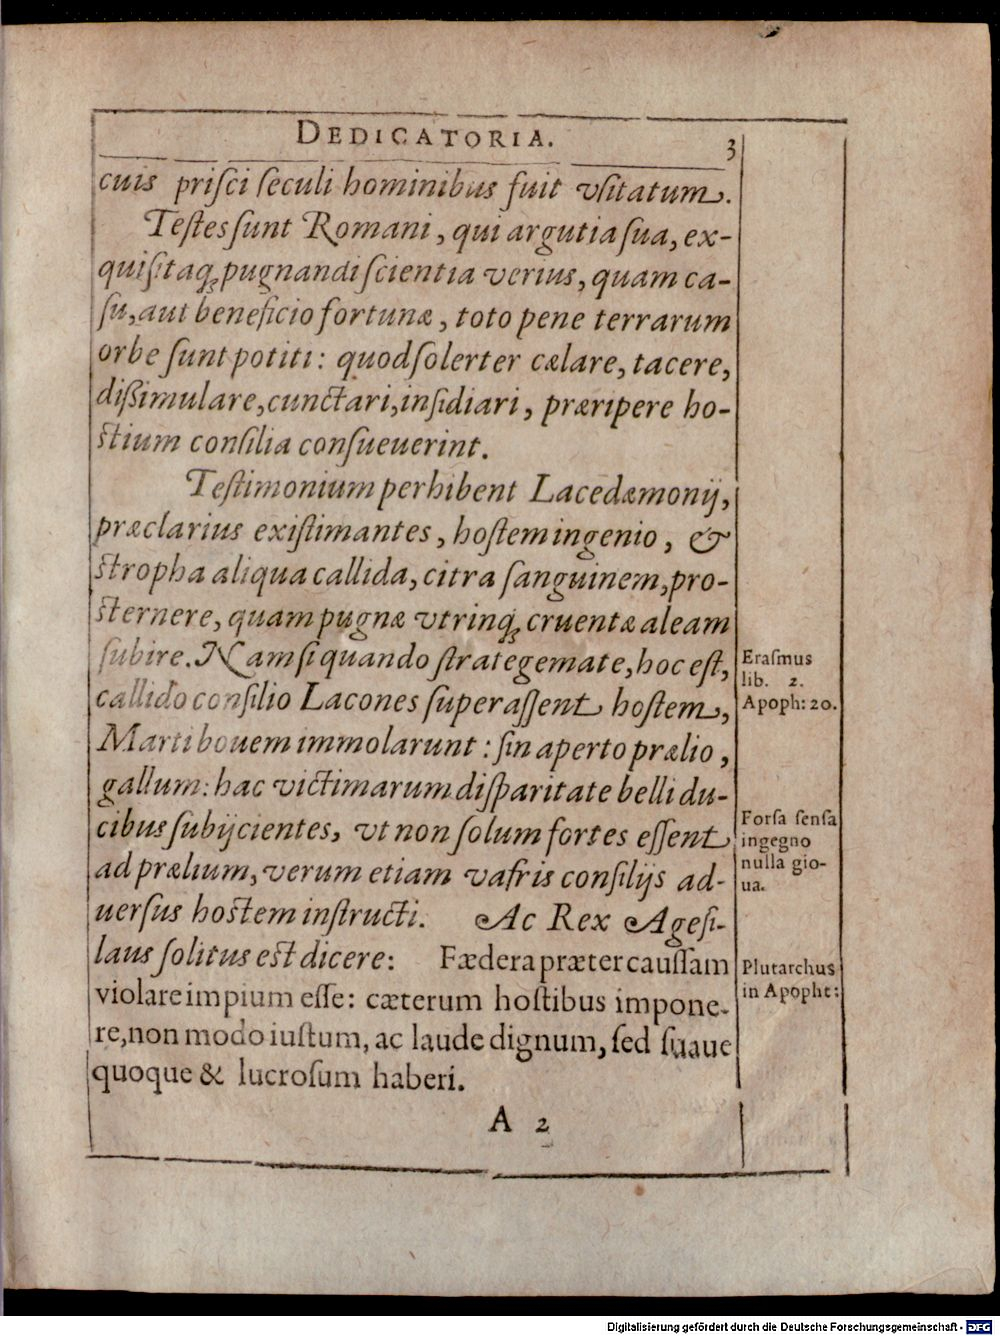 DEDICATORIA. 3
cuis priſci ſeculi hominibus fuit vſitatum.
Teſtes ſunt Romani, qui argutia ſua, ex-
quiſitaq; pugnandi ſcientia verius, quam ca-
ſu, aut beneficio fortunæ, toto pene terrarum
orbe ſunt potiti: quod ſolerter cælare, tacere,
dißimulare, cunctari, inſidiari, præripere ho-
ſtium conſilia conſueuerint.
Teſtimonium perhibent Lacedæmonij,
præclarius exiſtimantes, hoſtem ingenio, &
ſtropha aliqua callida, citra ſanguinem, pro-
ſternere, quam pugnæ vtrinq; cruentæ aleam
ſubire. Nam ſi quando ſtrategemate, hoc eſt,
callido conſilio Lacones ſuperaſſent hoſtem,
Marti bouem immolarunt: ſin aperto prælio,
gallum: hac victimarum diſparitate belli du-
cibus ſubijcientes, vt non ſolum fortes eſſent
ad prælium, verum etiam vafris conſilijs ad-
uerſus hoſtem inſtructi. Ac Rex Ageſi-
laus ſolitus eſt dicere: Fædera præter cauſſam
violare impium eſſe: cæterum hoſtibus impone-
re, non modo iuſtum, ac laude dignum, ſed ſuaue
quoque & lucroſum haberi.
A 2
Eraſmus
lib. 2.
Apoph: 20.
Forſa ſenſa
ingegno
nulla gio-
ua.
Plutarchus
in Apopht:
Digitalisierung gefördert durch die Deutsche Forschungsgemeinschaft - DFG